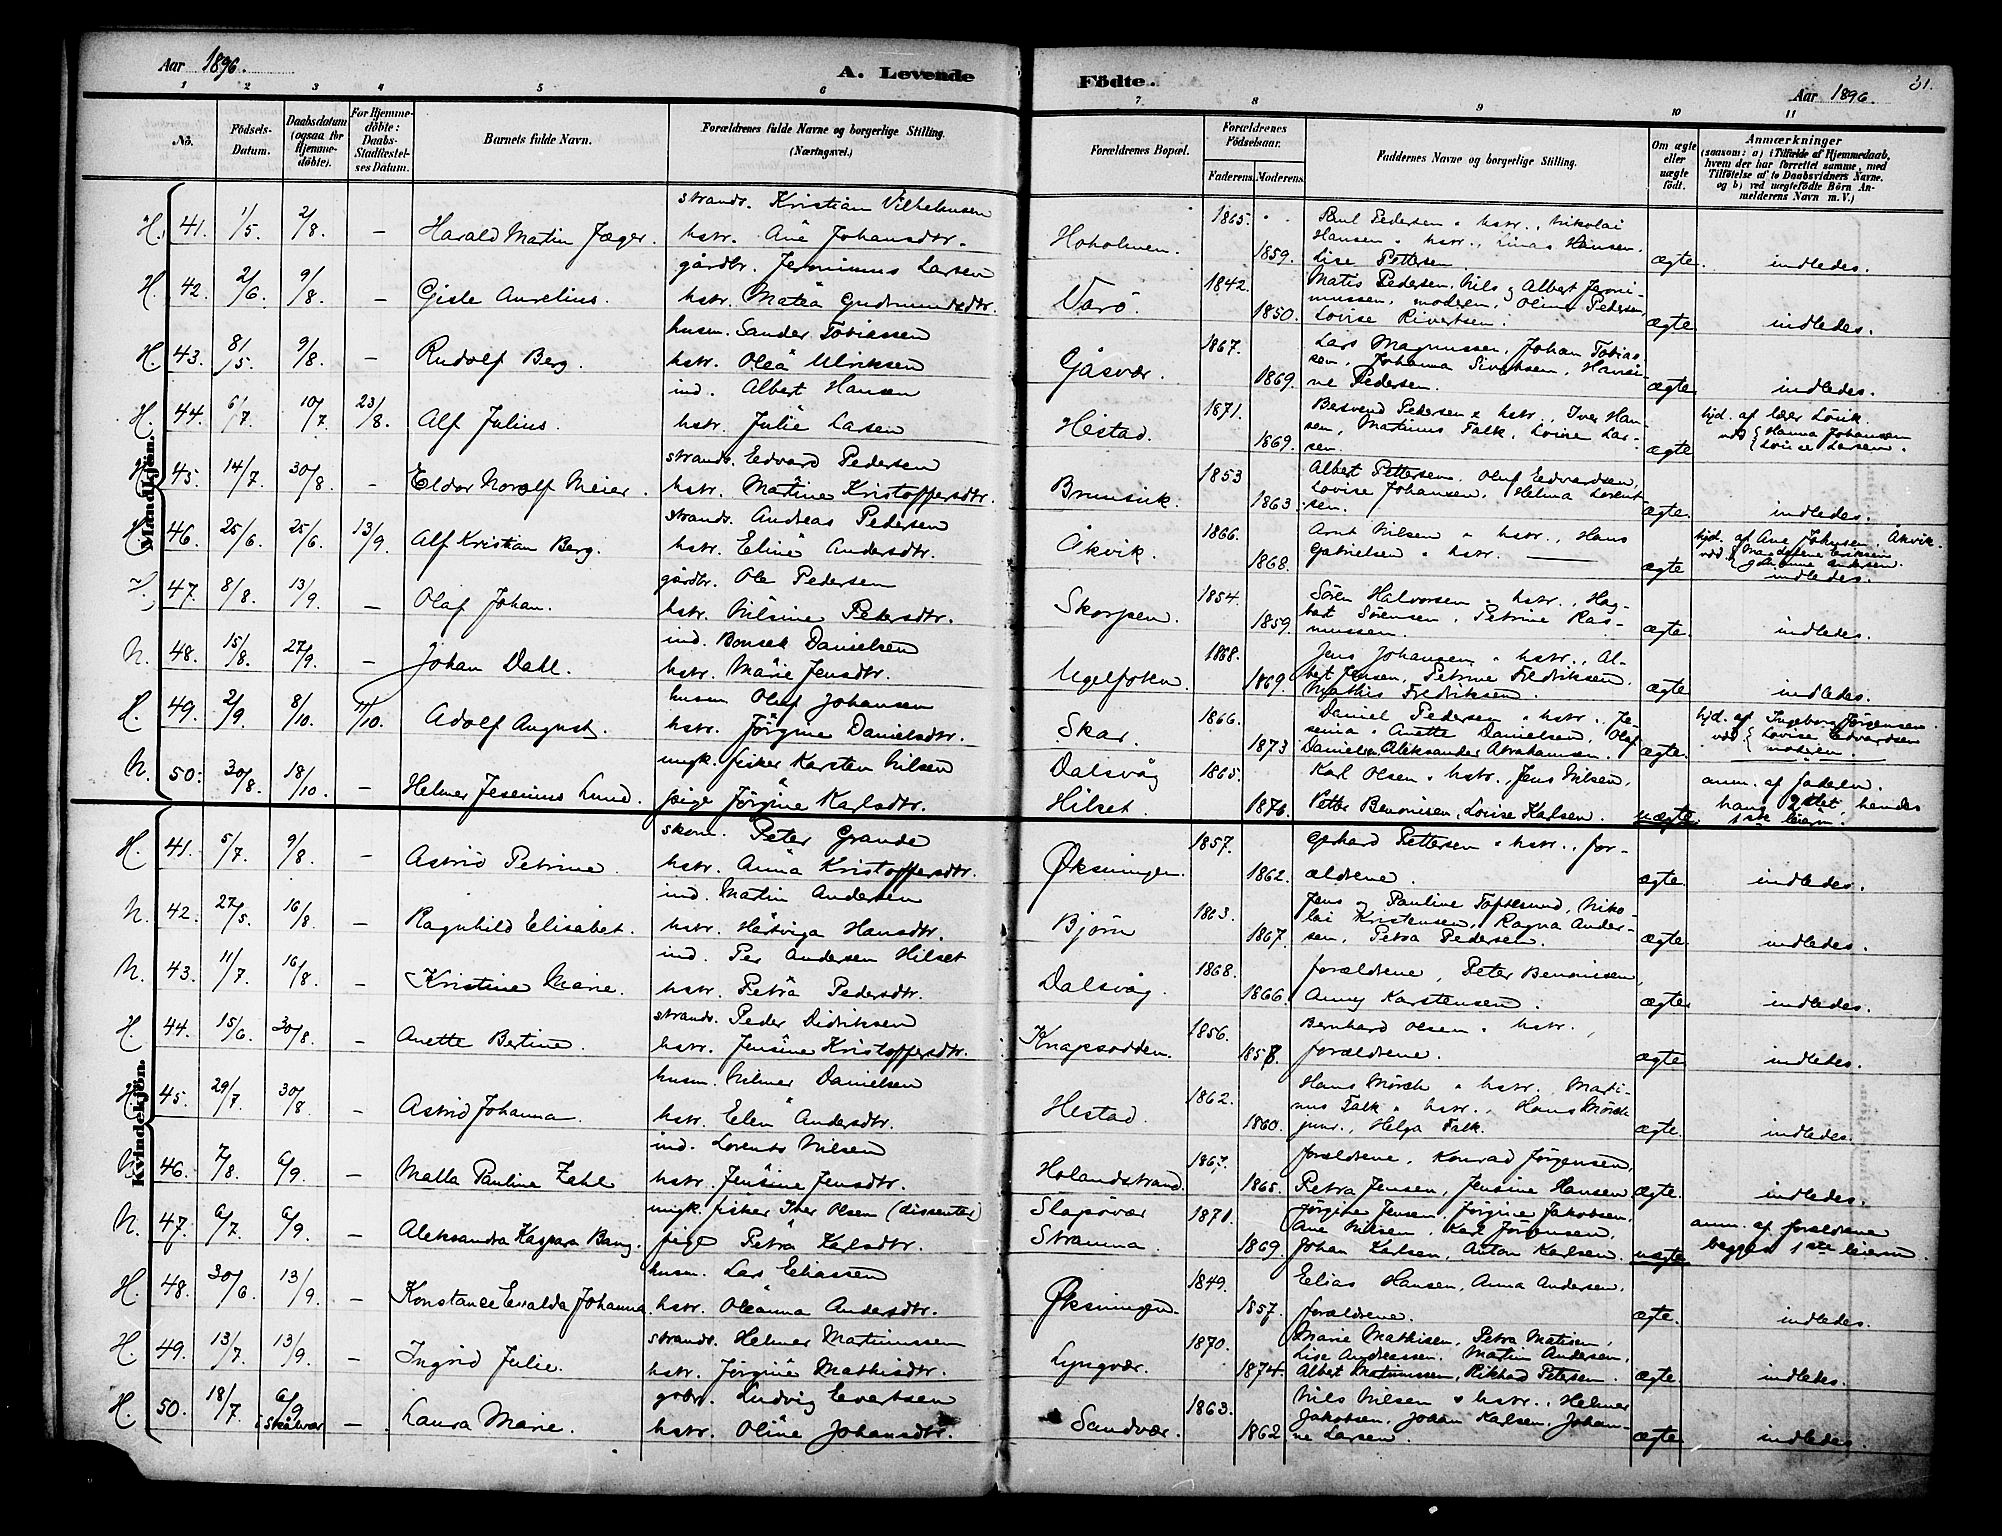 Aar 1896.
A. Levende
Födte.
Aar 1896.
31.
1 2 3 4 5 6 7 8 9 10 11
No.
Födsels-Datum.
Daabsdatum (ogsaa for Hjemmedöbte).
For Hjemmedöbte: Daabs-Stadfæstelses Datum.
Barnets fulde Navn.
Forældrenes fulde Navne og borgerlige Stilling. (Næringsvei.)
Forældrenes Bopæl.
Forældrenes Födselsaar.
Faderens. Moderens.
Faddernes Navne og borgerlige Stilling.
Om ægte eller uægte født.
Anmærkninger
(saasom: a) i Tilfælde af Hjemmedaab,
hvem der har forrettet samme, med
Tilföielse af to Daabsvidners Navne.
og b) ved uægtefödte Börn Anmelderens Navn m. V.)
Mandkjön.
H. 41. 1/5 2/8 – Harald Martin Jæger. strands. Kristian Vilhelmsen
hstr. Ane Johansdtr. Hoholmen. 1865. 1859. Paul Pedersen o hstr., Nikolai
Hansen o hstr., Linas Hansen,
Lise Pettersen ægte. indledes.
H. 42. 2/6 9/8 – Gisle Aurelius. gårdbr. Jeronimus Larsen
hstr. Matea Gudmundsdtr. Varö. 1842. 1850. Mats Pedersen, Nils og Albert Jeroni-
mussen, moderen, Olina Pedersen,
Lovise Rivertsen. ægte indledes.
H. 43. 8/5 9/8 – Rudolf Berg. husm. Sander Tobiessen
hstr. Olea Ulriksen Gåsvær. 1867. 1869. Lars Magnussen, Johan Tobias-
sen, Johanna Sivertsen, Hansi-
ne Pedersen. ægte indledes.
H. 44. 6/7 10/7 23/8 Alf Julius. ind. Albert Hansen
hstr. Julie Lasen Hestad. 1871. 1869. Pedersen o hstr., Iver Han-
sen, Martinus Falk, Lovise Lar-
sen. ægte hjd. af lær Lövik.
vdd { Hanna Johansen
Lovise Larsen.
H. 45. 14/7 30/8 – Eldor Norolf Meier. strands. Edvard Pedersen
hstr. Martine Kristoffersdtr. Brunsvik. 1853 1863. Albert Pettersen, Oluf Edvardsen,
Lovise Johansen, Helma Lorent-
sen. ægte. indledes.
H. 46. 25/6 25/6 13/9 Alf Kristian Berg. strands. Andreas Pedersen
hstr. Eline Andersdtr. Åkvik. 1866. 1868. Arnt Nilsen o hstr., Hans
Gabrielsen o hstr. ægte hjd. af Ane Johnsen, Åkvik.
vdd. Eriksen
Andersen.
indledes.
47. 8/8. 13/9. – Olaf Johan. gårdbr. Ole Pedersen
hstr. Nilsine Petersdtr. Skorpen. 1854. 1859. Sören Halvorsen o hstr., Hag-
bart Sörensen, Petrine Ras-
mussen. ægte. indledes.
N. 48. 15/8. 27/9. – Johan Dahl. ind. Bonsak Danielsen
hstr. Marie Jensdtr. 1868. 1869. Jens Johansen o hstr., Al-
bert Jensen, Petrine Fredriksen,
Mathis Fredriksen. ægte indledes.
H. 49. 2/9 8/10 11/10 Adolf August. husm Olaf Johansen
hstr. Jörgine Danielsdtr. Skar. 1866. 1873 Daniel Pedersen o hstr., Je-
sema o Anette Danielsen, Olaf
Danielsen, Aleksander Abrahamsen. ægte. hjd. af Ingeborg Jörgensen.
vdd { Lovise Edvardsen
moderen.
N. 50. 30/8. 18/10 – Helmer Jesenius Lund. ungk. fisker Karsten Nilsen
pige Jörgine Karlsdtr. Dalsvåg
Hilset. 1865. 1876. Karl Olsen o hstr., Jens Nilsen,
Petter Benonisen, Lovise Karlsen. uægte anm. af faderen.
hans 2det, hendes
1ste leierm.
Kvindekjön.
H. 41. 5/7 9/8 – Astrid Petrine. skom. Peter Grande
hstr. Anna Kristoffersdtr. Øksningen. 1857. 1862. Gerhard Pettersen o hstr., for-
ældrene. ægte. indledes.
N. 42. 27/5. 16/8 – Ragnhild Elisabet. ind. Martin Andersen
hstr. Hartviga Hansdtr. Bjørn 1863. 1867. Jens og Pauline Toftesund, Niko-
lai Kristensen, Ragna Ander-
sen, Petra Pedersen. ægte. indledes.
N. 43. 11/7. 16/8 – Kristine Marie. ind. Per Andersen Hilset
hstr. Petra Pedersdtr. Dalsvåg. 1868. 1866. forældrene, Peter Benonisen,
Anny Karstensen. ægte indledes.
H. 44. 15/6. 30/8. – Anette Bertine. strands. Peder Didriksen
hstr. Jensine Kristoffersdtr. Knapsodden. 1856. 1858. Bernhard Olsen o hstr.,
forældrene. ægte indledes.
H. 45. 29/7. 30/8 – Astrid Johanna. husm. Nilmer Danielsen
hstr. Elen Andersdtr. Hestad. 1862. 1860. Hans Mörch o hstr., Marti-
nus Falk o hstr., Hans Mörch
junr., Helga Falk. ægte. indledes.
N. 46. 7/8. 6/9 – Malla Pauline Zahl ind. Lorents Nilsen
hstr. Jensine Jensdtr. Holandstrand. 1867. 1865. forældrene, Konrad Jörgensen,
Petra Jensen, Jensine Hansen ægte. indledes.
N. 47. 6/7. 6/9 – Aleksandra Kaspara Bang. ungk. fisker Iver Olsen (dissenter)
pige Petra Karlsdtr. Slapövær
Stramna. 1871. 1869. Jörgine Jensen, Jörgine Jakobsen,
Ane Nilsen, Karl Jörgensen,
Johan Karlsen, Anton Karlsen. uægte anm. af forældrene
begges 1ste leierm.
H. 48. 30/6. 13/9. – Konstance Evalda Johanna. husm. Lars Eliassen
hstr. Oleanna Andersdtr. Øksningen. 1849. 1857. Elias Hansen, Anna Andersen,
forældrene. ægte. indledes.
H. 49. 13/7. 13/9. – Ingrid Julie. strands. Helmer Martinussen
hstr. Jörgine Mathisdtr. Lyngvær. 1870. 1874. Marie Mathisen, Petra Matisen,
Lise Andreassen, Martin Andersen,
Albert Martinussen, Rikhard Petersen. ægte. indledes.
H. 50. 18/7. 6/9 i Skålvær – Laura Marie. gdbr. Ludvig Evertsen
hstr. Oline Johansdtr. Sandvær. 1863. 1862 Nils Nilsen o hstr., Helmer
Jakobsen, Johan Karlsen, Johan-
ne Larsen. ægte indledes.